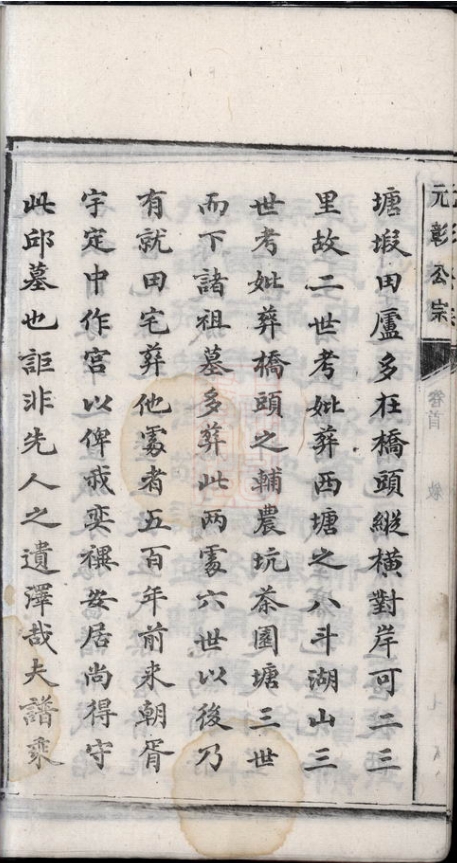 元彰公宗
卷首
塘塅田廬多在橋頭縱橫對岸可二三
里故二世考妣葬西塘之八斗湖山三
世考妣葬橋頭之輔農坑茶園塘三世
而下諸祖墓多葬此兩處六世以後乃
有就田宅葬他處者五百年前來朝胥
宇定中作宮以俾我奕禩安居尚得守
此邱墓也詎非先人之遺澤哉夫譜乘